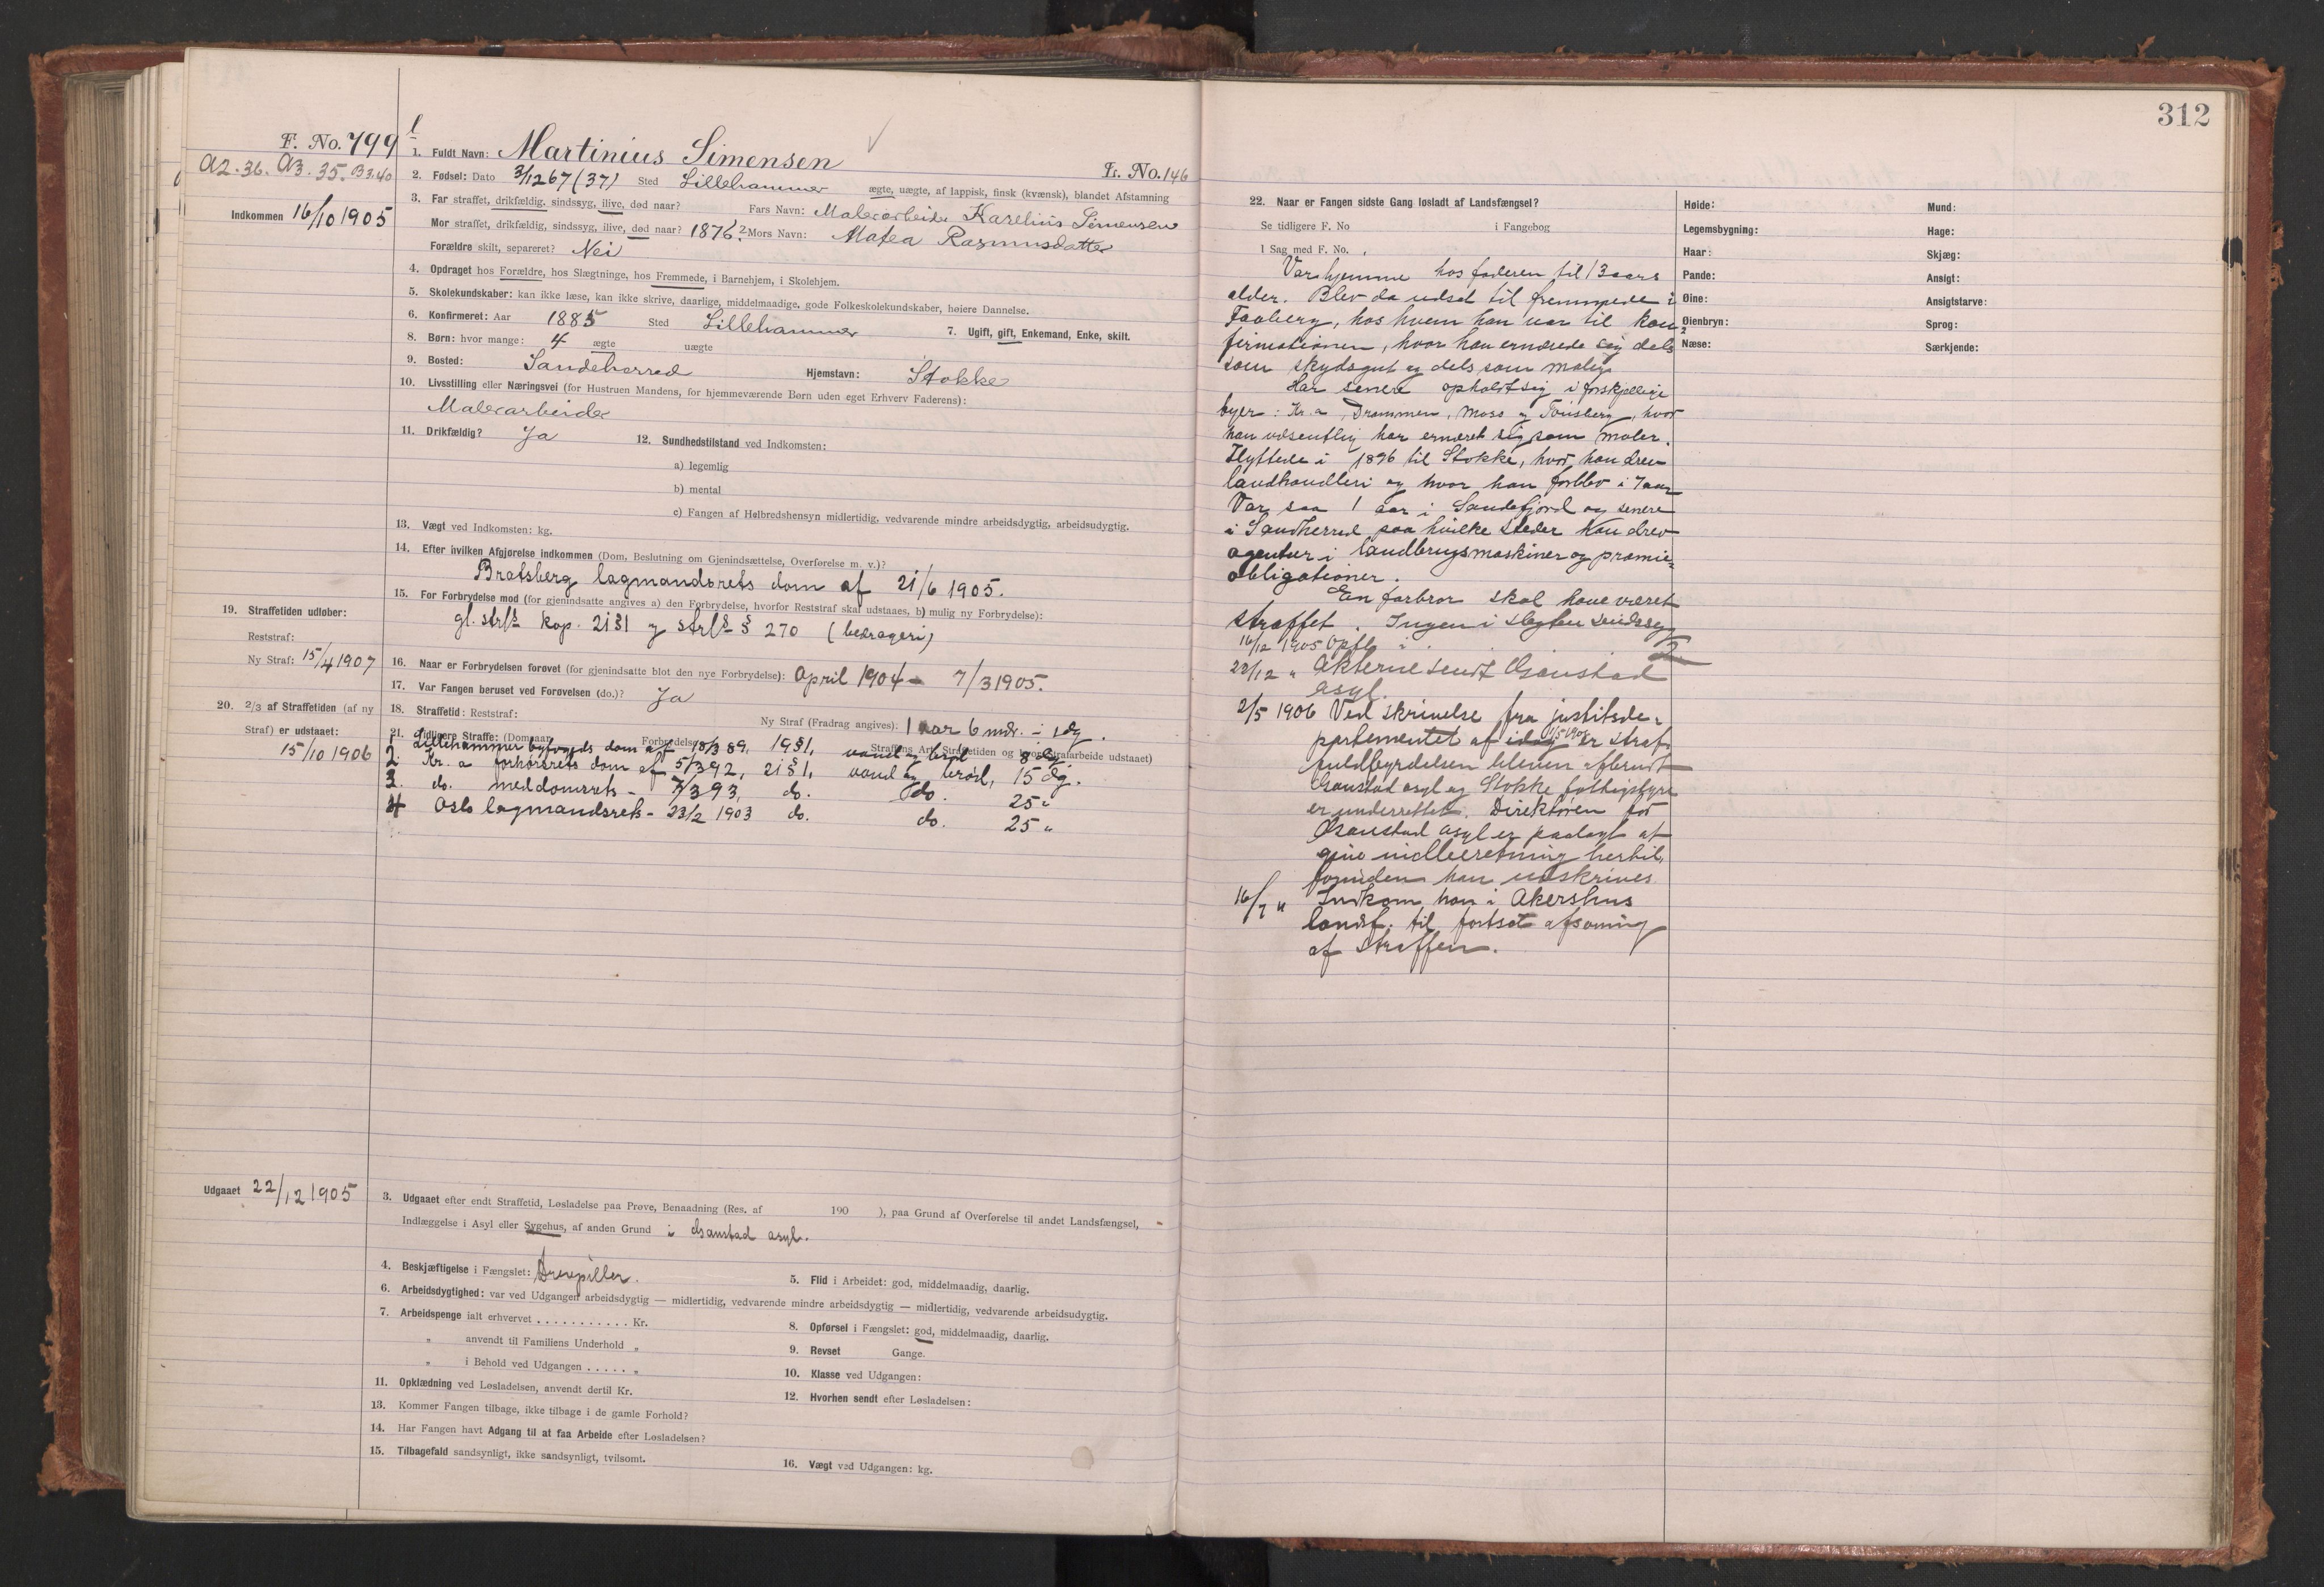 312
F. No. 799
A2. 36. A3. 35. B3.40
Indkommen 16/10 1905
1. Fuldt Navn: Martinius Simensen
Fr. No. 146
2. Fødsel: Dato 3/12 67 (37) Sted Lillehammer ægte, uægte, af lappisk, finsk (kvænsk), blandet Afstamning
3. Far straffet, drikfældig, sindssyg, ilive, død naar? Fars Navn: Malerarbeider Karelius Simensen
Mor straffet, drikfældig, sindssyg, ilive, død naar? 1876? Mors Navn: Matea Rasmusdatter
Forældre skilt, separeret? Nei
4. Opdraget hos Forældre, hos Slægtninge, hos Fremmede, i Barnehjem, i Skolehjem.
5. Skolekundskaber: kan ikke læse, kan ikke skrive, daarlige, middelmaadige, gode Folkeskolekundskaber, høiere Dannelse.
6. Konfirmeret: Aar 1885 Sted Lillehammer 7. Ugift, gift, Enkemand, Enke, skilt.
8. Børn: hvor mange: 4 ægte uægte
9. Bosted: Sandeherred Hjemstavn: Stokke
10. Livsstilling eller Næringsvei (for Hustruen Mandens, for hjemmeværende Børn uden eget Erhverv Faderens):
Malerarbeider
11. Drikfældig? Ja 12. Sundhedstilstand ved Indkomsten:
a) legemlig
b) mental
c) Fangen af Helbredshensyn midlertidig, vedvarende mindre arbeidsdygtig, arbeidsudygtig.
13. Vægt ved Indkomsten: kg.
14. Efter hvilken Afgjørelse indkommen (Dom, Beslutning om Gjenindsættelse, Overførelse m. v.)?
Bratsberg lagmandsrets dom af 21/6 1905.
15. For Forbrydelse mod (for gjenindsatte angives a) den Forbrydelse, hvorfor Reststraf skal udstaaes, b) mulig ny Forbrydelse):
gl. strfl. kap. 21 § 1 og strfl. § 270 (bedrageri)
19. Straffetiden udløber:
Reststraf:
Ny Straf: 15/4 1907
16. Naar er Forbrydelsen forøvet (for gjenindsatte blot den nye Forbrydelse): April 1904 - 7/3 1905.
17. Var Fangen beruset ved Forøvelsen (do.)? Ja
20. 2/3 af Straffetiden (af ny
Straf) er udstaaet:
15/10 1906
18. Straffetid: Reststraf: Ny Straf (Fradrag angives): 1 aar 6 mdr. - 1 dg.
21. Tidligere Straffe: (Domsaar, Forbrydelse, Straffens Art, Straffetiden og hvor Strafarbeide udstaaet)
1. Lillehammer byfogeds dom af 18/3 89, 19 § 1, vand og brød 8 dg.
2. Kr.a forhørsrets dom af 5/3 92, 21 § 1, vand og brød, 15 dg.
3. do. meddomsrets - 7/3 93, do. do. 25 "
4 Oslo lagmandsrets - 23/2 1903 do. do. 25 "
Udgaaet 22/12 1905
3. Udgaaet efter endt Straffetid, Løsladelse paa Prøve, Benaadning (Res. af 190 ), paa Grund af Overførelse til andet Landsfængsel,
Indlæggelse i Asyl eller Sygehus, af anden Grund i Gaustad asyl.
4. Beskjæftigelse i Fængslet: Drevpiller. 5. Flid i Arbeidet: god, middelmaadig, daarlig.
6. Arbeidsdygtighed: var ved Udgangen arbeidsdygtig — midlertidig, vedvarende mindre arbeidsdygtig — midlertidig, vedvarende arbeidsudygtig.
7. Arbeidspenge ialt erhvervet . . . . . . . . . . . Kr. 8. Opførsel i Fængslet: god, middelmaadig, daarlig.
" anvendt til Familiens Underhold " 9. Revset Gange.
" i Behold ved Udgangen . . . . . " 10. Klasse ved Udgangen:
11. Opklædning ved Løsladelsen, anvendt dertil Kr. 12. Hvorhen sendt efter Løsladelsen:
13. Kommer Fangen tilbage, ikke tilbage i de gamle Forhold?
14. Har Fangen havt Adgang til at faa Arbeide efter Løsladelsen?
15. Tilbagefald sandsynligt, ikke sandsynligt, tvilsomt. 16. Vægt ved Udgangen: kg.
22. Naar er Fangen sidste Gang løsladt af Landsfængsel?
Se tidligere F. No i Fangebog
I Sag med F. No.
Var hjemme hos faderen til 13 aars
alder. Blev da udsat til fremmede i
Faaberg, hos hvem han var til kon-
firmationen, hvor han ernærede sig dels
som skydsgut og dels som maler.
Har senere opholdt sig i forskjellige
byer: Kr.a, Drammen, Moss og Tønsberg, hvor
han væsentlig har ernæret sig som maler.
Flyttede i 1896 til Stokke, hvor han drev
landhandleri og hvor han forblev i 7 aar
Var saa 1 aar i Sandefjord og senere
i Sandherred paa hvilke steder han drev
agentur i landbrugsmaskiner og præmie-
obligationer.
En farbror skal have været
straffet. Ingen i slegten sindssyg
16/12 1905 Opfl
22/12 " Akterne sendt Gaustad
asyl.
2/5 1906 Ved skrivelse fra justitsde-
partementet af idag 1/5 1906 er straf-
fuldbyrdelsen bleven afbrudt
Gaustad asyl og Stokke fattigstyre
er underrettet. Direktøren for
Gaustad asyl er paalagt at
give indberetning hertil,
forinden han udskrives.
16/7 " Indkom han i Akershus
landsf. til fortsat afsoning
af straffen.
Høide:
Legemsbygning:
Haar:
Pande:
Øine:
Øienbryn:
Næse:
Mund:
Hage:
Skjæg:
Ansigt:
Ansigtsfarve:
Sprog:
Særkjende: